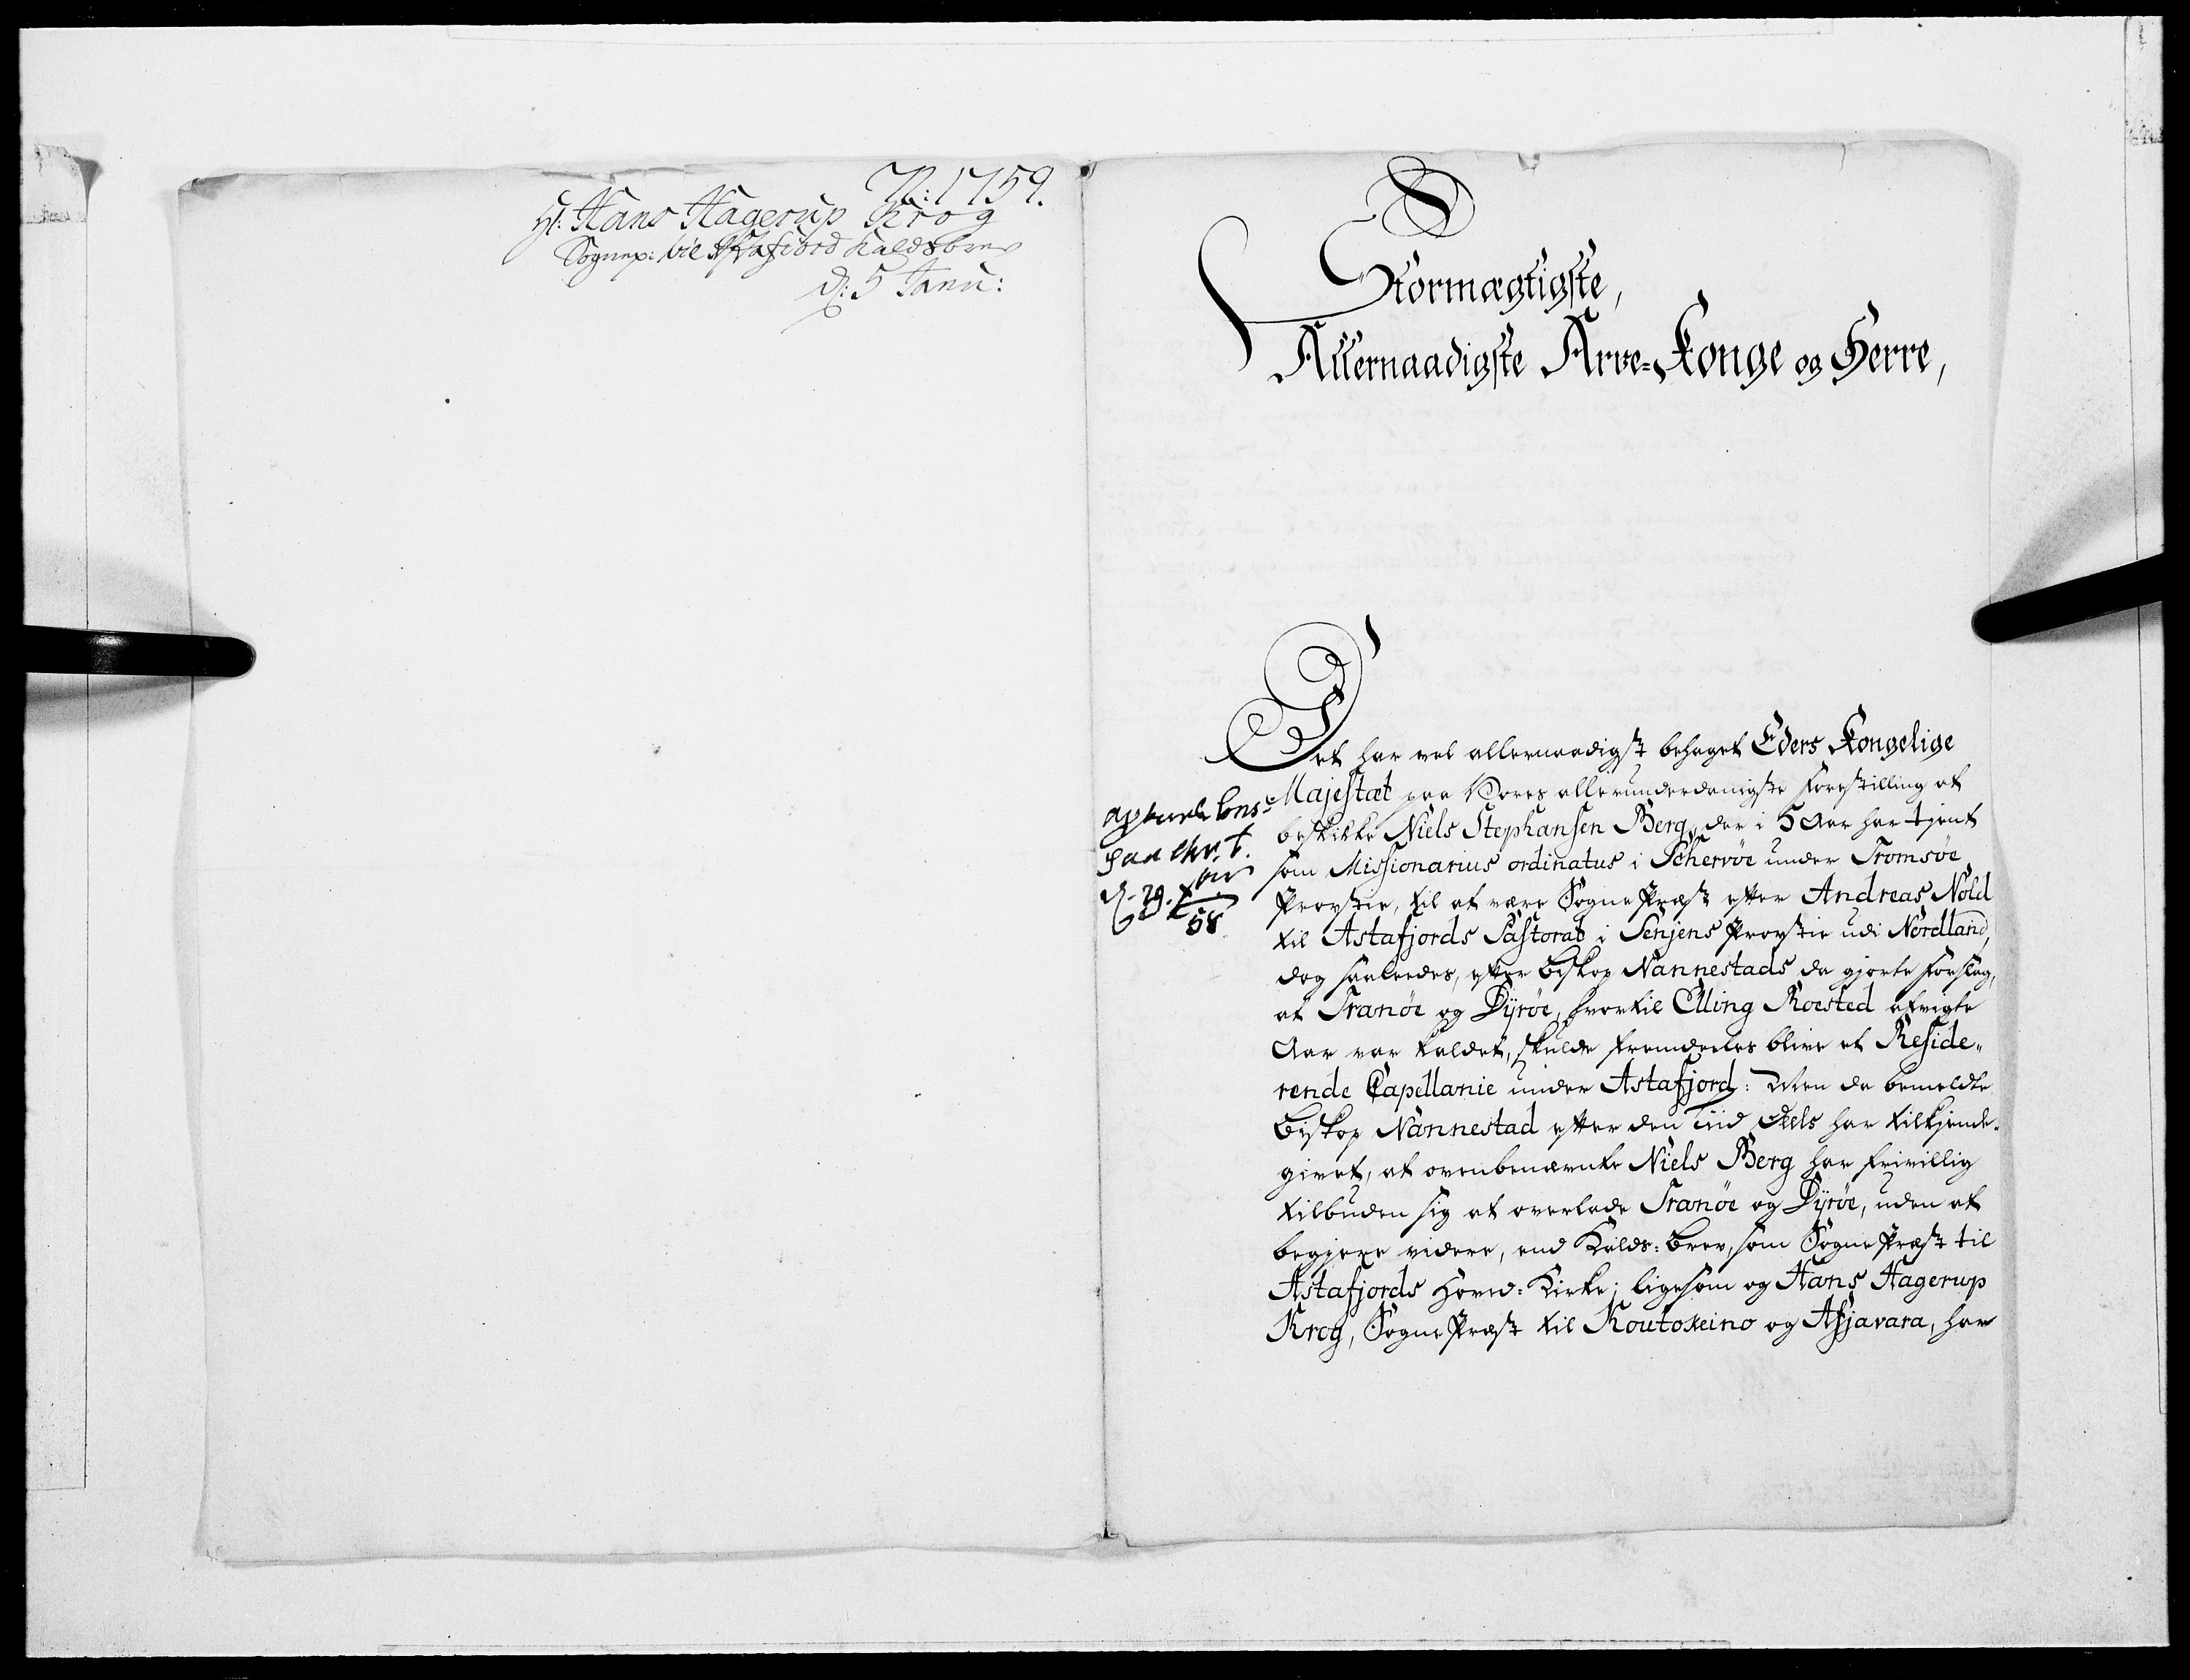 N: 1759.
Hr: Hans Hagerup Krog
Sognep: til Astafiord Kaldsbrev
d: 5 Janu:
Stormægtigste,
Allernaadigste Arve-Konge og Herre,
Det har vel allernaadigst behaget Eders Kongelige
Majestæt paa Vores allerunderdanigste Forestilling at
beskikke Niels Stephansen Berg, der i 5 Aar har tjent
som Missionarius ordinatus i Schervöe under Tromsöe
Provstie, til at være Sogne Præst efter Andreas Nold
til Astafjords Pastorat i Senjens Provstie udi Nordland,
dog saaledes, efter Biskop Nannestads da gjorte Forslag,
at Tranöe og Dÿröe, hvortil Elling Roested afvigte
Aar var kaldet, skulde fremdeeles blive et Reside„
rende Capellanie under Astafjord: Men da bemeldte
Biskop Nannestad efter den Tiid deels har tilkjende„
givet, at ovenbenævnte Niels Berg har frivillig
tilbuden sig at overlade Tranöe og Dÿröe, uden at
begjere videre, end Kalds-Brev, som Sogne Præst til
Astafjords Hoved-Kirke; ligesom og Hans Hagerup
Krog, Sogne Præst til Koutokeino og Afjavara, har
d. 29. Xbr
58